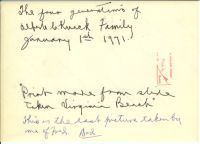 The four generations of
Family
January 1st 1971
"Print made from slide
taken Virginia Beach"
This is the last picture taken by
me of Dad.